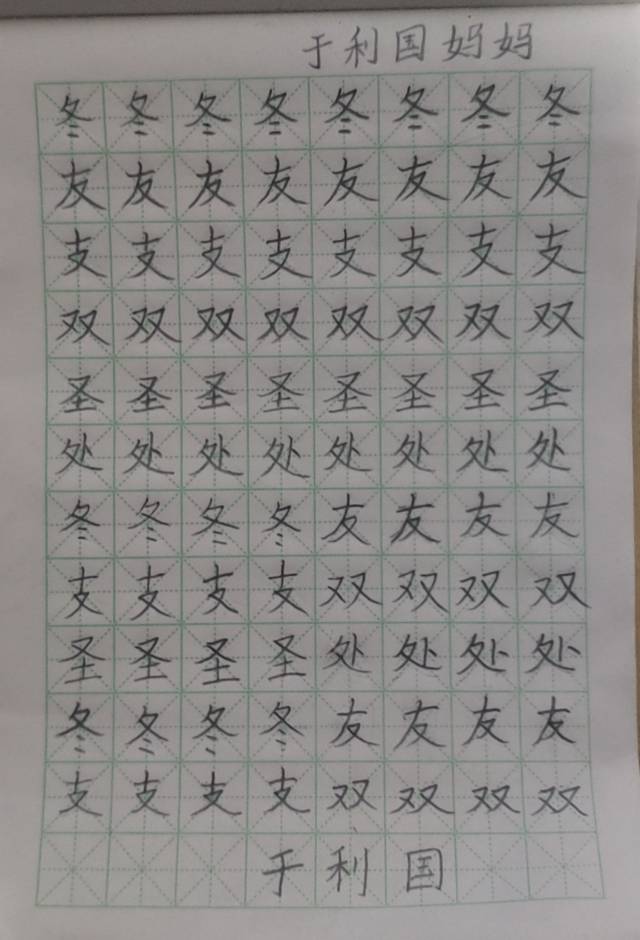 于利国妈妈
冬冬冬冬冬冬冬冬
友友友友友友友友
支支支支支支支支
双双双双双双双双
圣圣圣圣圣圣圣圣
处处处处处处处处
冬冬冬冬友友友友
支支支支双双双双
圣圣圣圣处处处处
冬冬冬冬友友友友
支支支支双双双双
于利国